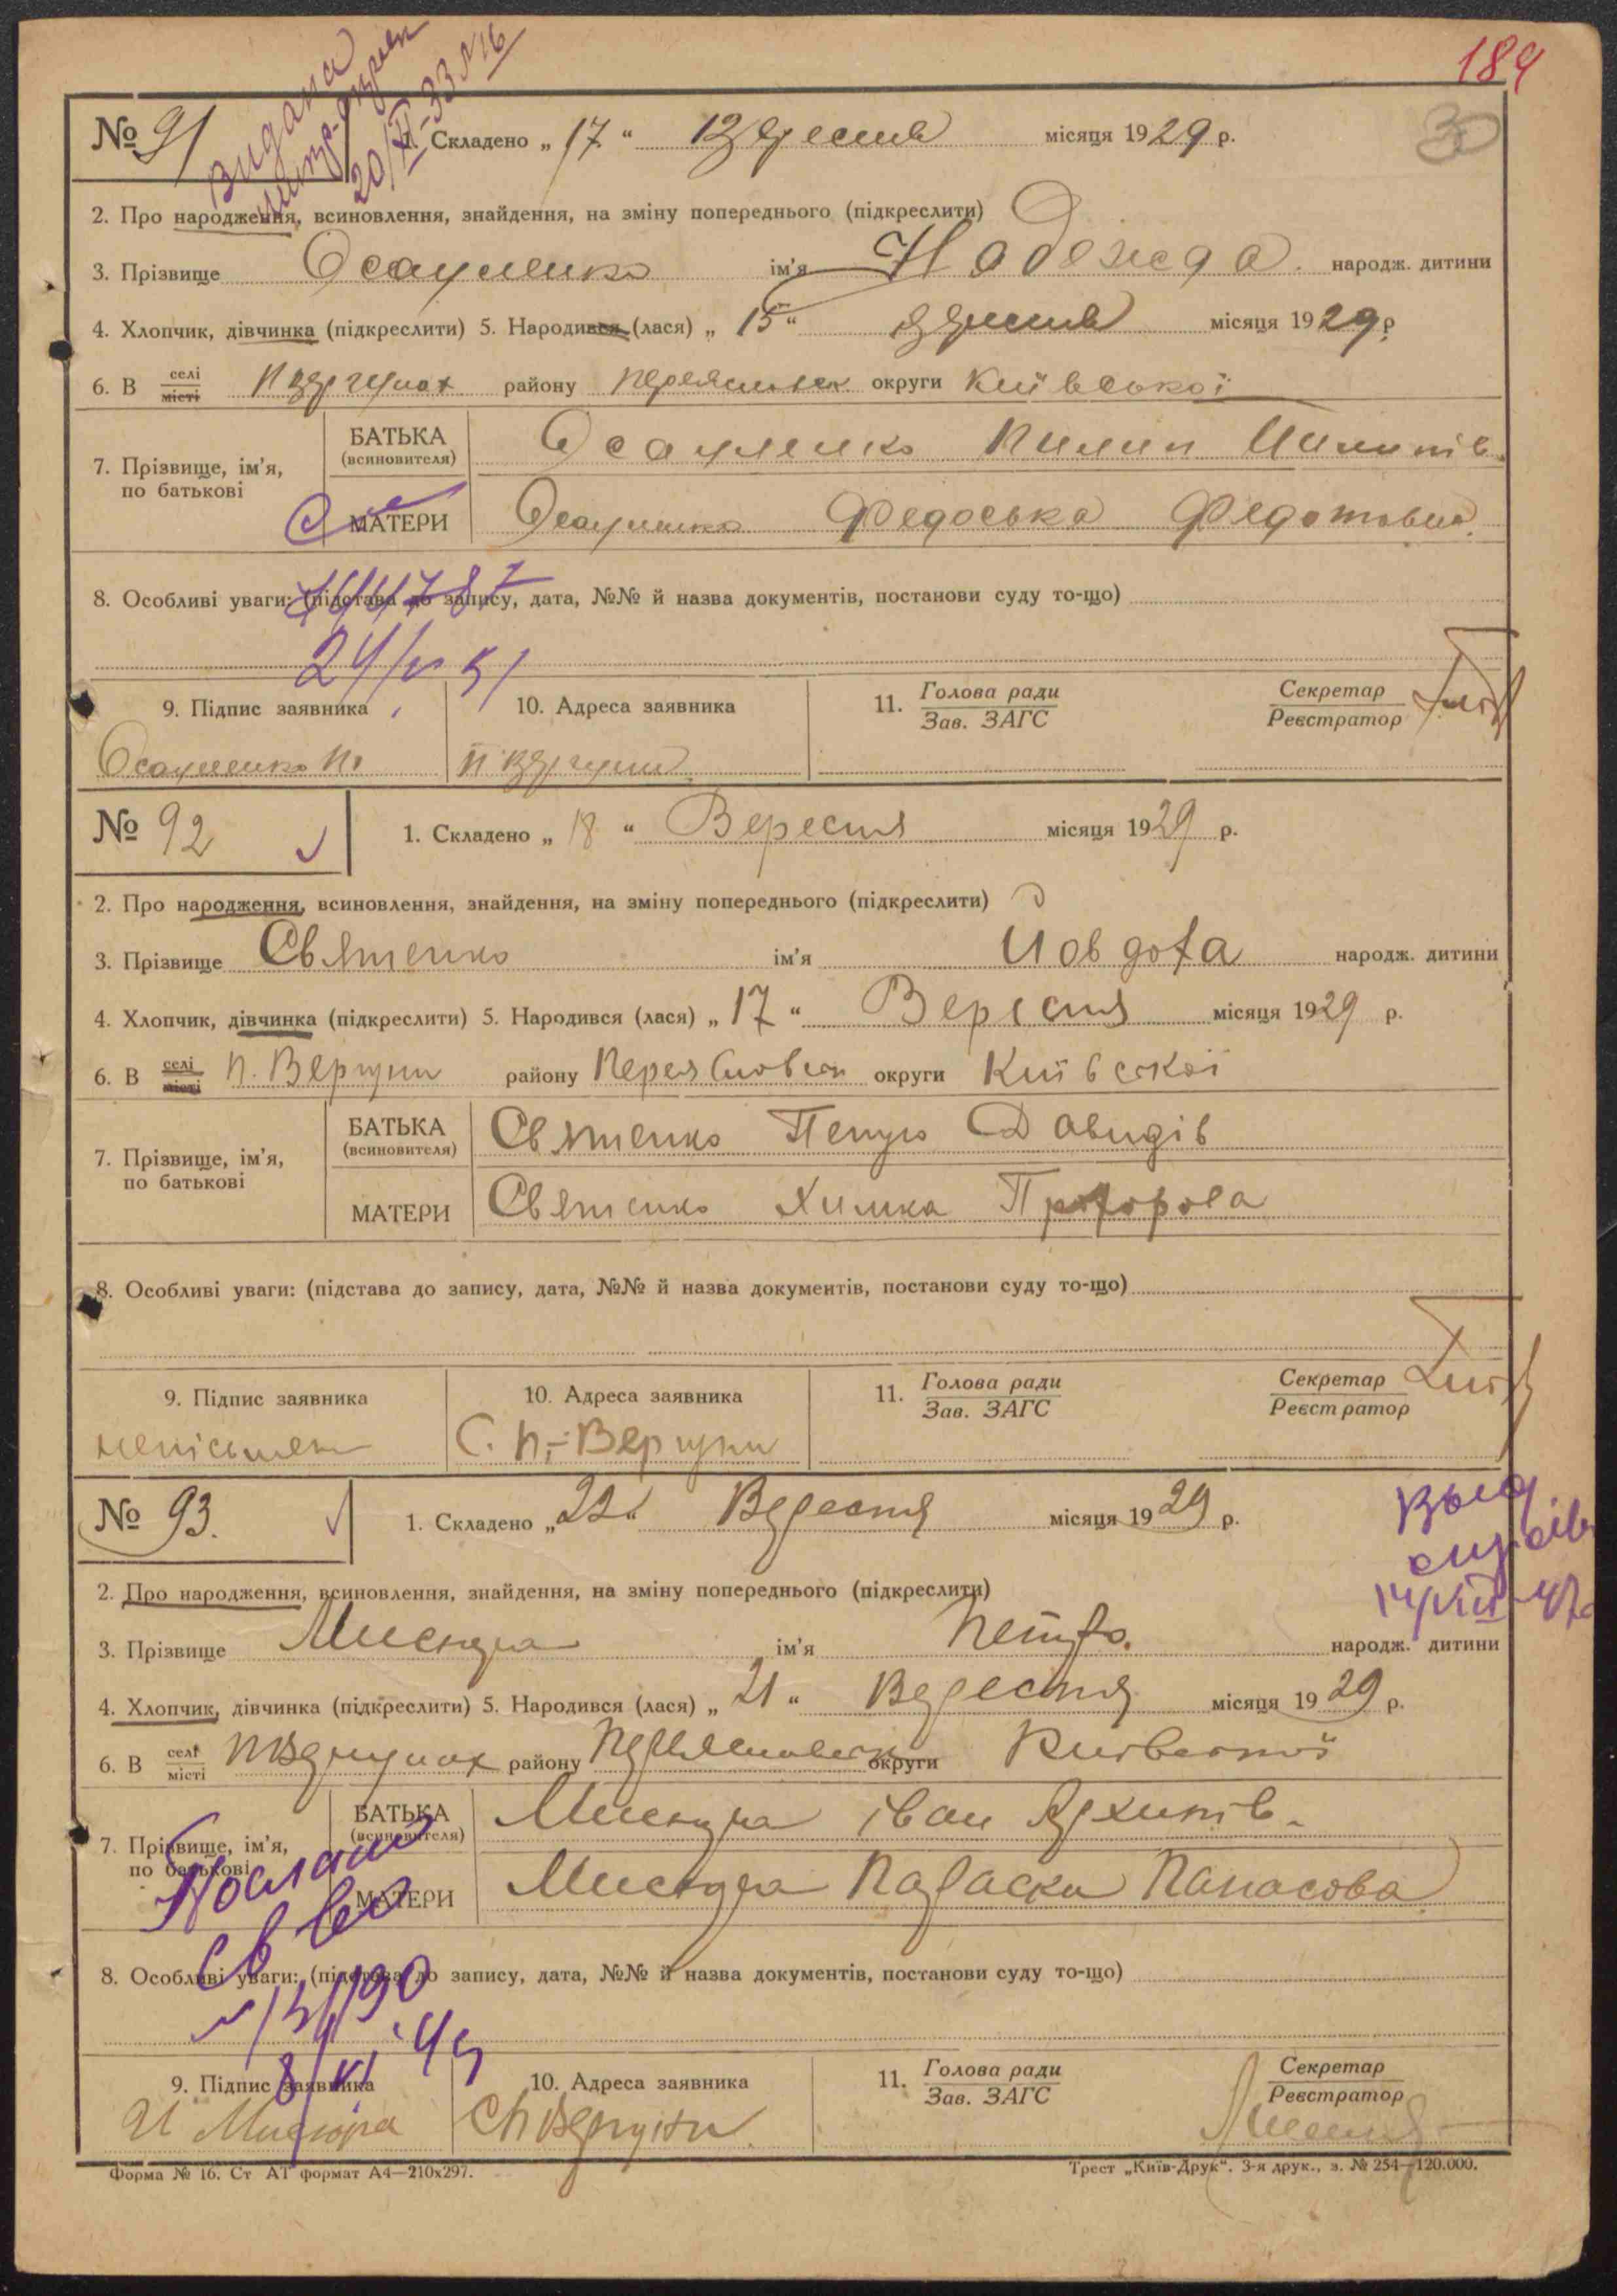 184
30
Видана
20/XI-33 №16
№ 91 1. Складено „ 17 “ Вересня місяця 1929 р.
2. Про народження, всиновлення, знайдення, на зміну попереднього (підкреслити)
3. Прізвище Осауленко ім'я Надежда народж. дитини
4. Хлопчик, дівчинка (підкреслити) 5. Народився (лася) „ 15 “ Вересня місяця 1929 р.
6. В селі місті П Вергунах району Переяславськ округи Київської
7. Прізвище, ім'я, по батькові
БАТЬКА (всиновителя) Осауленко Пилип Пилипів
МАТЕРИ Осауленко Федоська Федотовна
8. Особливі уваги: (підстава до запису, дата, №№ й назва документів, постанови суду то-що)
9. Підпис заявника 10. Адреса заявника 11. Голова ради Зав. ЗАГС Секретар Реєстратор
Осауленко П. П Вергуни
№ 92 1. Складено „ 18 “ Вересня місяця 1929 р.
2. Про народження, всиновлення, знайдення, на зміну попереднього (підкреслити)
3. Прізвище Святенко ім'я Йовдоха народж. дитини
4. Хлопчик, дівчинка (підкреслити) 5. Народився (лася) „ 17 “ Вересня місяця 1929 р.
6. В селі місті П. Вергуни району Переяславськ округи Київської
7. Прізвище, ім'я, по батькові
БАТЬКА (всиновителя) Святенко Петро Давидів
МАТЕРИ Святенко Химка Прохорова
8. Особливі уваги: (підстава до запису, дата, №№ й назва документів, постанови суду то-що)
9. Підпис заявника 10. Адреса заявника 11. Голова ради Зав. ЗАГС Секретар Реєстратор
неписьмен С. П.-Вергуни
№ 93. 1. Складено „ 22 “ Вересня місяця 1929 р.
2. Про народження, всиновлення, знайдення, на зміну попереднього (підкреслити)
3. Прізвище Мисюра ім'я Петро. народж. дитини
4. Хлопчик, дівчинка (підкреслити) 5. Народився (лася) „ 21 “ Вересня місяця 1929 р.
6. В селі місті ПВергунах району Переяславськ округи Київської
7. Прізвище, ім'я, по батькові
БАТЬКА (всиновителя) Мисюра Іван Архипів.
МАТЕРИ Мисюра Параска Панасова
8. Особливі уваги: (підстава до запису, дата, №№ й назва документів, постанови суду то-що)
9. Підпис заявника 10. Адреса заявника 11. Голова ради Зав. ЗАГС Секретар Реєстратор
И Мисюра С П Вергуни
Форма № 16. Ст АТ формат А4—210x297. Трест „Київ-Друк“. 3-я друк., з. № 254—120.000.